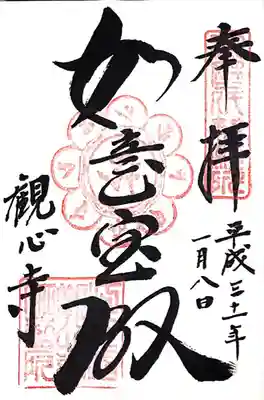 奉拝
平成三十一年
一月八日
如意宝殿
観心寺